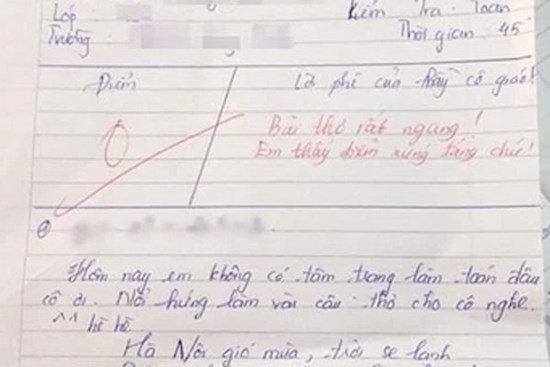 Lớp :
Trường :
Kiểm Tra : Toán
Thời gian : 45'
Điểm
Lời phê của thầy cô giáo!
0
Bài thơ rất ngang !
Em thấy điểm xứng đáng chứ!
Hôm nay em không có tâm trạng làm toán đâu
cô ơi. Nổi hứng làm vài câu thơ cho cô nghe.
^^ hề hề
Hà Nội gió mùa, trời se lạnh